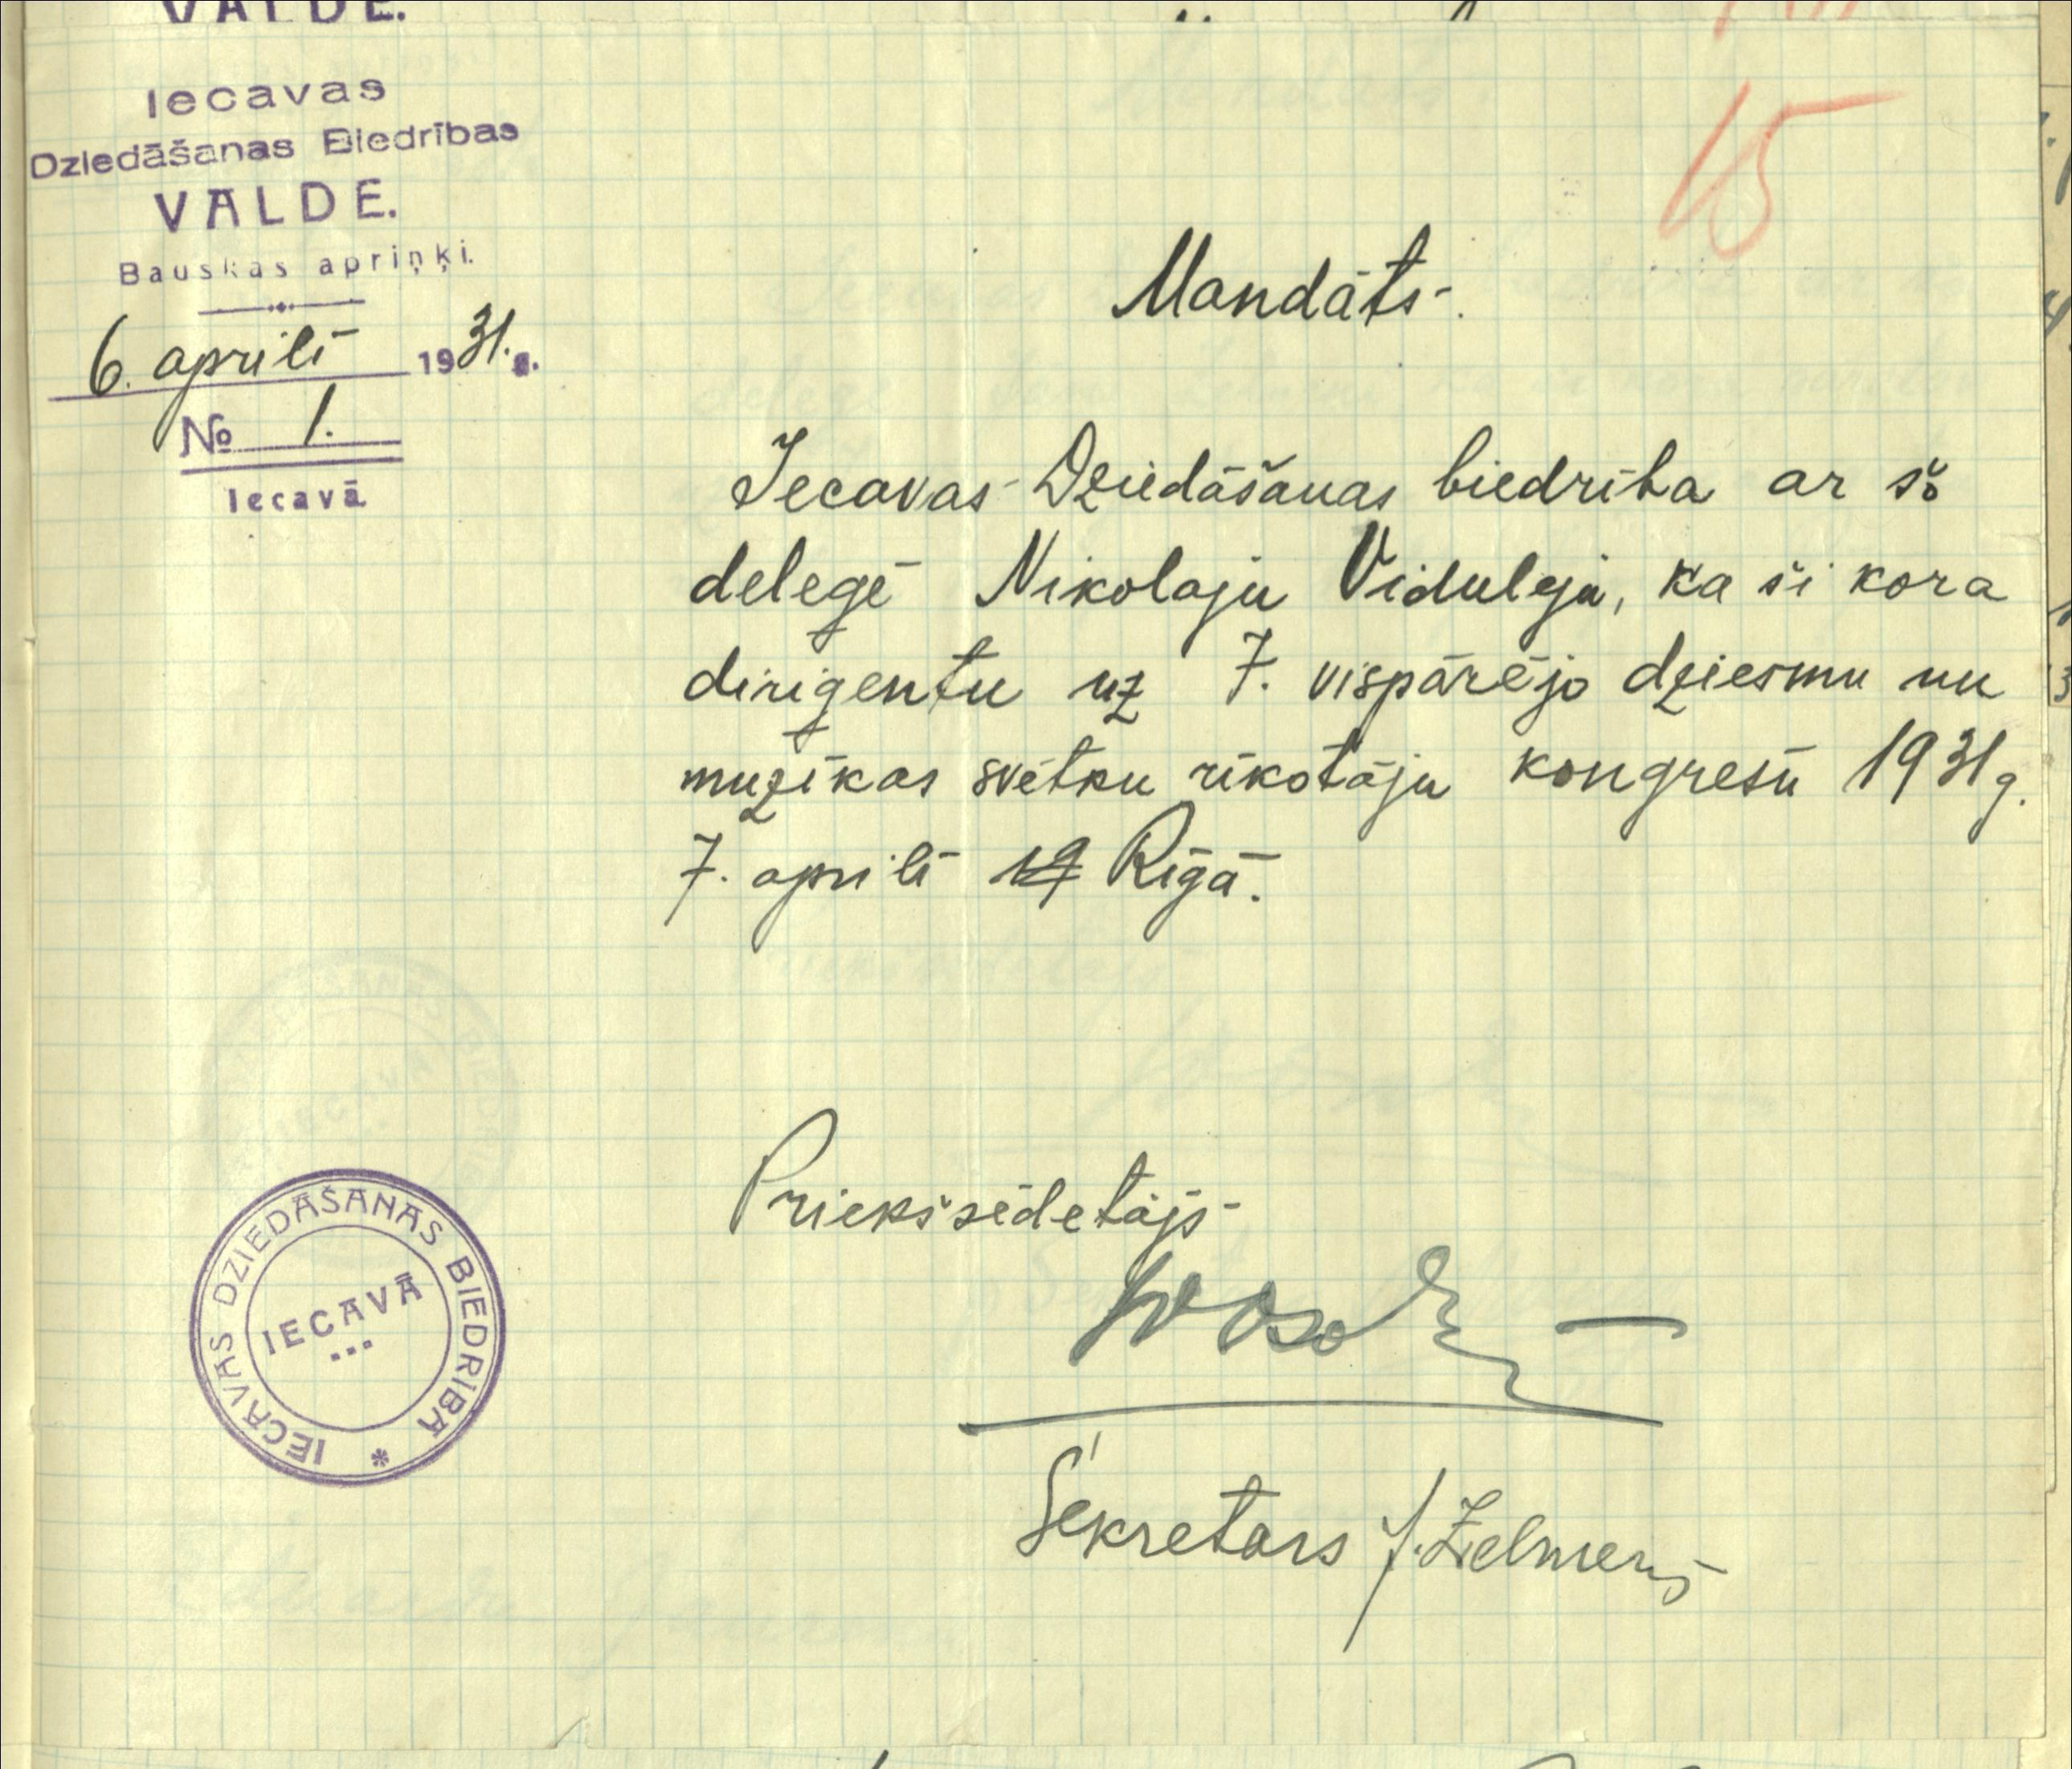 VALDE.
Iecavas
Dziedāšanas Biedrības
VALDE.
Bauskas apriņķi.
6. aprilī 1931. g.
№ 1.
Iecavā
15
Mandāts.
Iecavas Dziedāšanas biedrība ar šo
deleģē Nikolaju Viduleju, ka šī kora
diriģentu uz 7. vispārējo dziesmu un
muzikas svētku rīkotāju kongresū 1931 g.
7. aprilī 19 Rīgā.
Priekšsēdētājs
Sekretars J. Zelmenis
IECAVAS DZIEDĀŠANAS BIEDRĪBA *
IECAVĀ